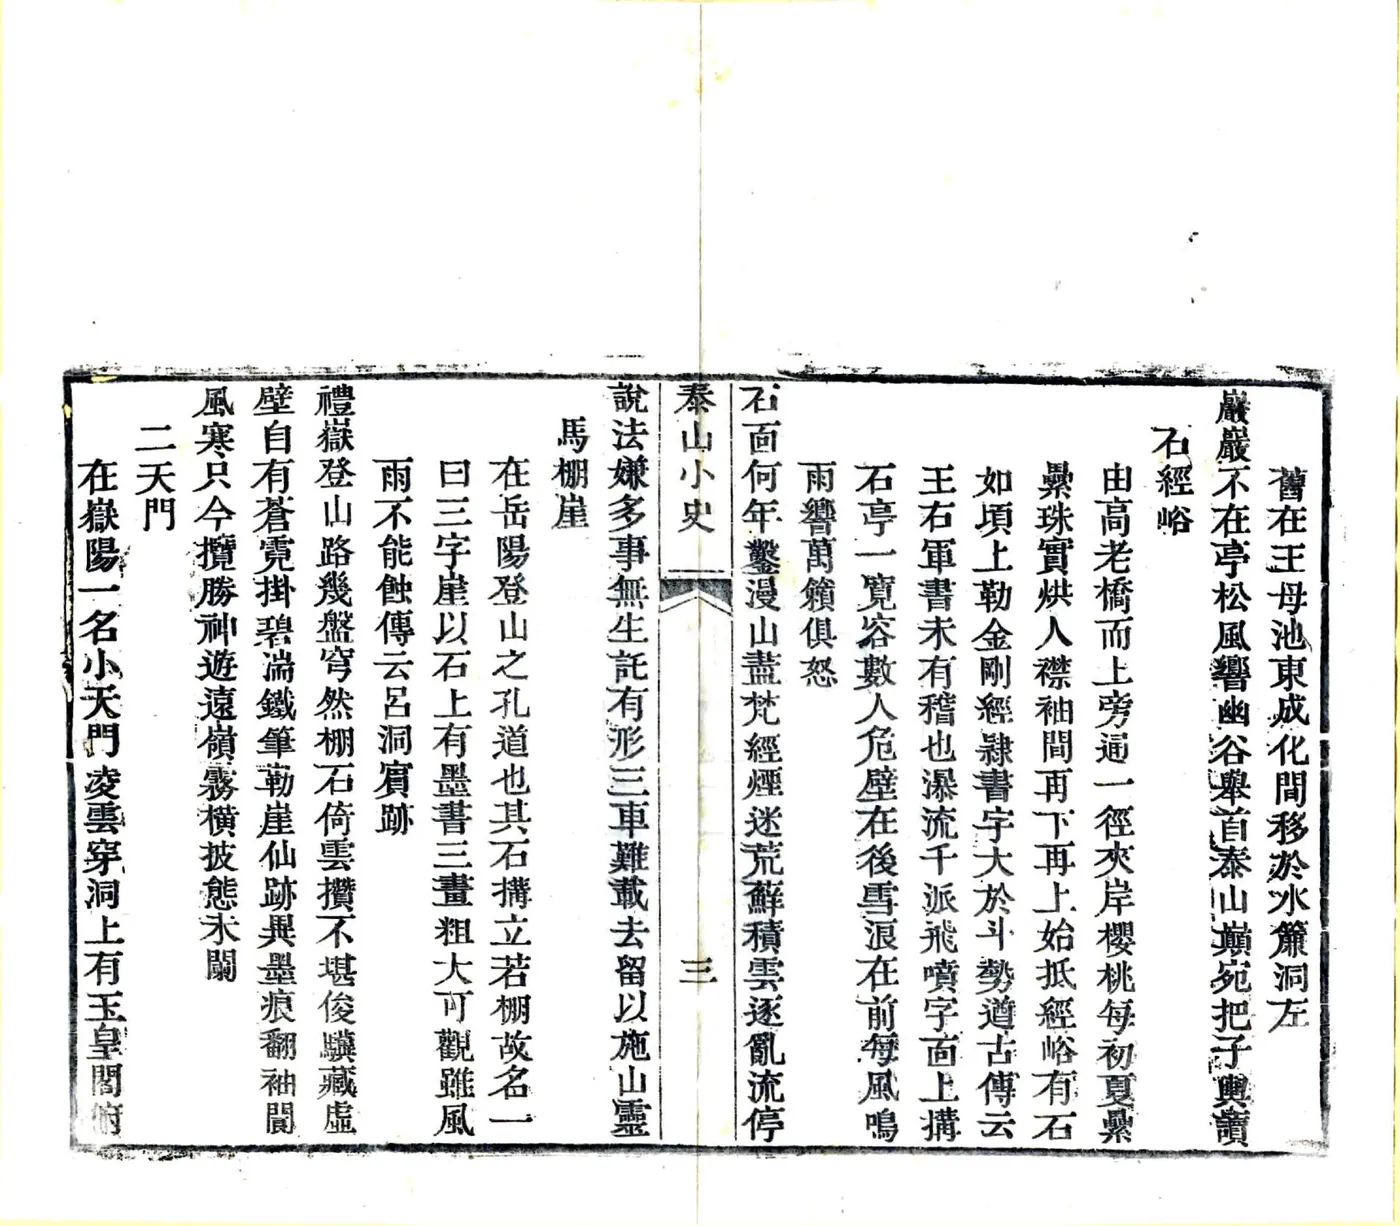 舊在王母池東成化間移於水簾洞左
巖巖不在亭松風響幽谷舉首泰山巔宛把子輿讀
石經峪
由高老橋而上旁通一徑夾岸櫻桃每初夏纍
纍珠實烘人襟袖間再下再上始抵經峪有石
如頃上勒金剛經隸書字大於斗勢遒古傳云
王右軍書未有稽也瀑流千派飛噴字面上搆
石亭一覽容數人危壁在後雪浪在前每風鳴
雨響萬籟俱怒
石面何年鑿漫山盡梵經煙迷荒蘚積雲逐亂流停
泰山小史
三
說法嫌多事無生託有形三車難載去留以施山靈
馬棚崖
在岳陽登山之孔道也其石搆立若棚故名一
曰三字崖以石上有墨書三畫粗大可觀雖風
雨不能蝕傳云呂洞賓跡
禮嶽登山路幾盤穹然棚石倚雲攢不堪俊驥藏虛
壁自有蒼霓掛碧湍鐵筆勒崖仙跡異墨痕翻袖閬
風寒只今攬勝神遊遠嶺霧橫披態未闌
二天門
在嶽陽一名小天門凌雲穿洞上有玉皇閣俯